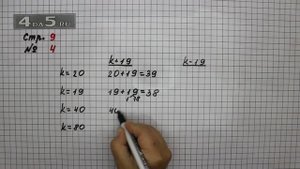 4DA5.RU
Стр. 9
№ 4
k+19 k-19
k=20 20+19=39
k=19 19+19=38
k=40 40
k=80